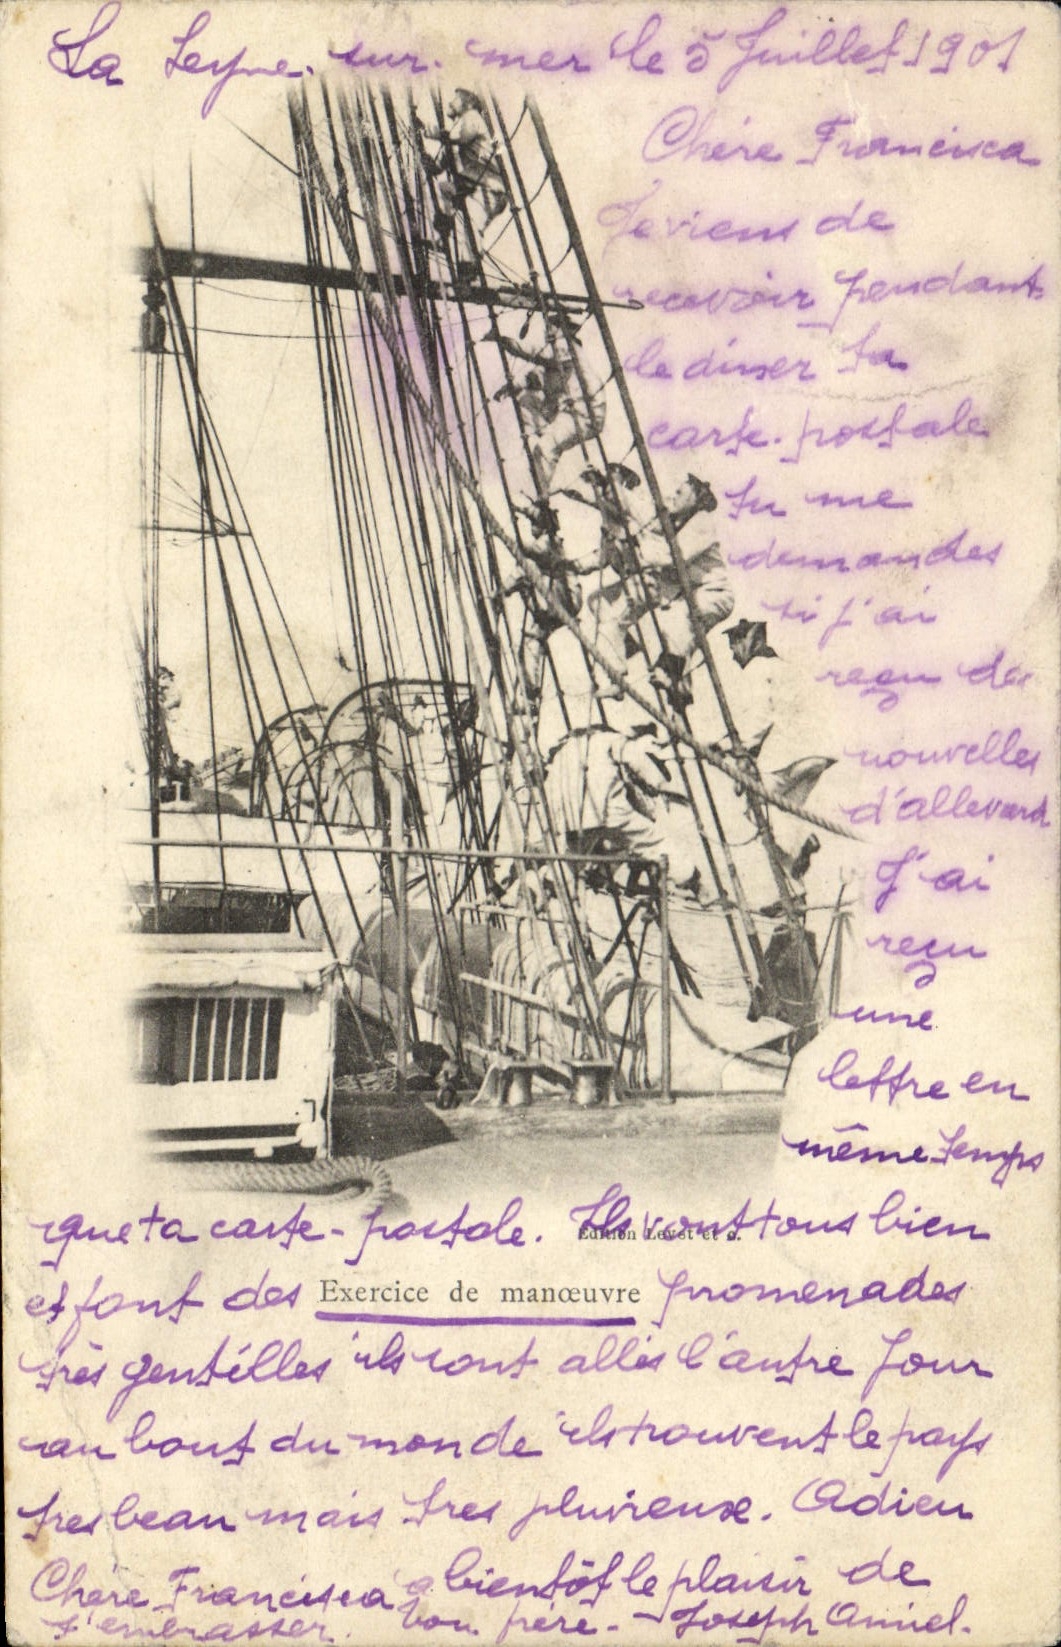 La Seyne. sur. mer le 5 Juillet 1901
Chére Francisca
Je viens de
recevoir pendant
le diner ta
carte. postale
tu me
demandes
si j'ai
reçu des
nouvelles
d'allevard
J'ai
reçu
une
lettre en
même temps
que ta carte-postale. Ils vont tous bien
Edition Levet et c.
et font des Exercice de manœuvre promenades
très gentilles ils sont allés l'autre jour
au bout du monde ils trouvent le pays
tres beau mais tres pluvieux. Adieu
Chère Francisca a bientôt le plaisir de
t'embrasser. Ton père. - Joseph Amiel.